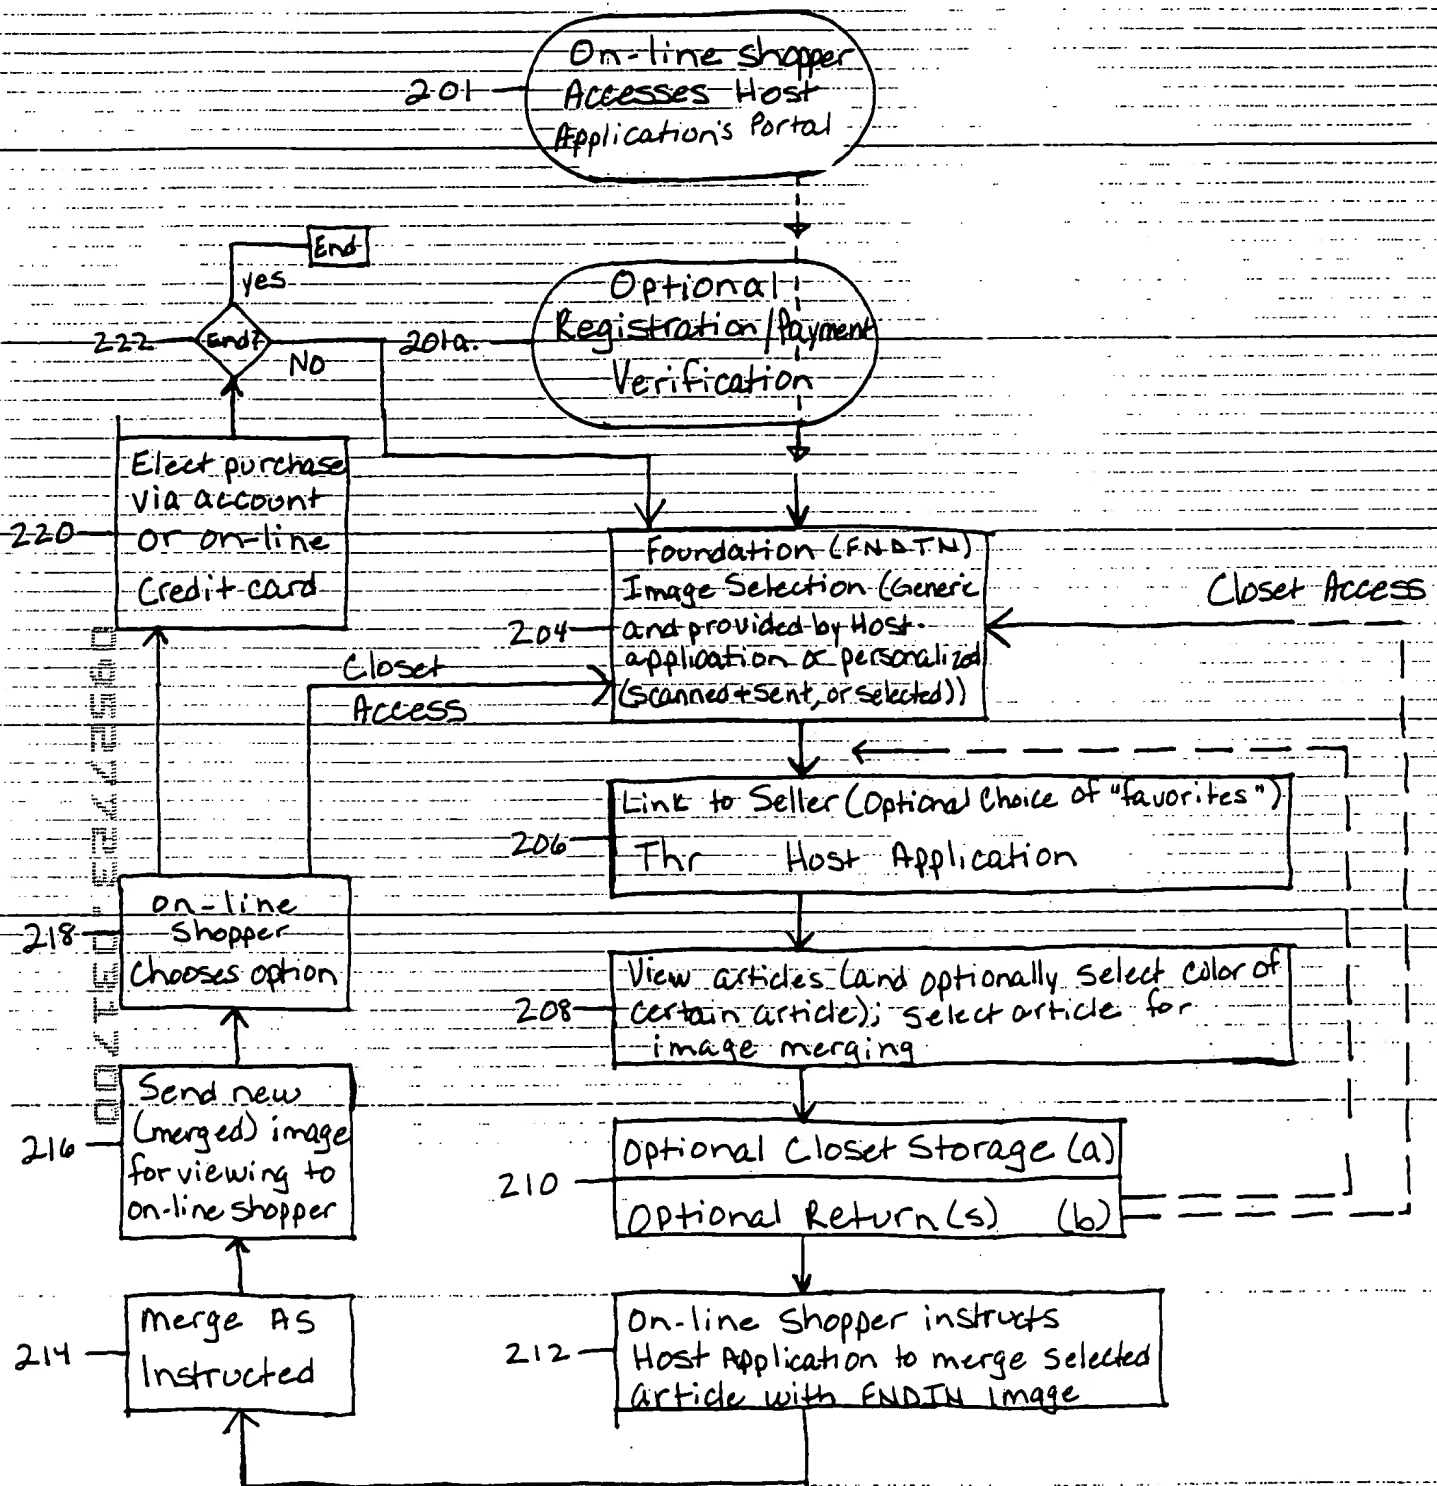 On-line shopper
Accesses Host
Application's Portal
201
End
yes
Optional
Registration/Payment
Verification
222
End?
No
201a.
Elect purchase
via account
or on-line
Credit card
220
Foundation (FNDTN)
Image Selection (Generic
and provided by Host
application or personalized
(scanned + sent, or selected))
204
Closet Access
Closet
Access
Link to Seller (Optional Choice of "favorites")
Thr Host Application
206
on-line
shopper
chooses option
218
View articles (and optionally select color of
certain article); select article for
image merging
208
Send new
(merged) image
for viewing to
on-line shopper
216
Optional Closet Storage (a)
Optional Return(s) (b)
210
merge As
Instructed
214
On-line Shopper instructs
Host Application to merge selected
article with FNDTN Image
212